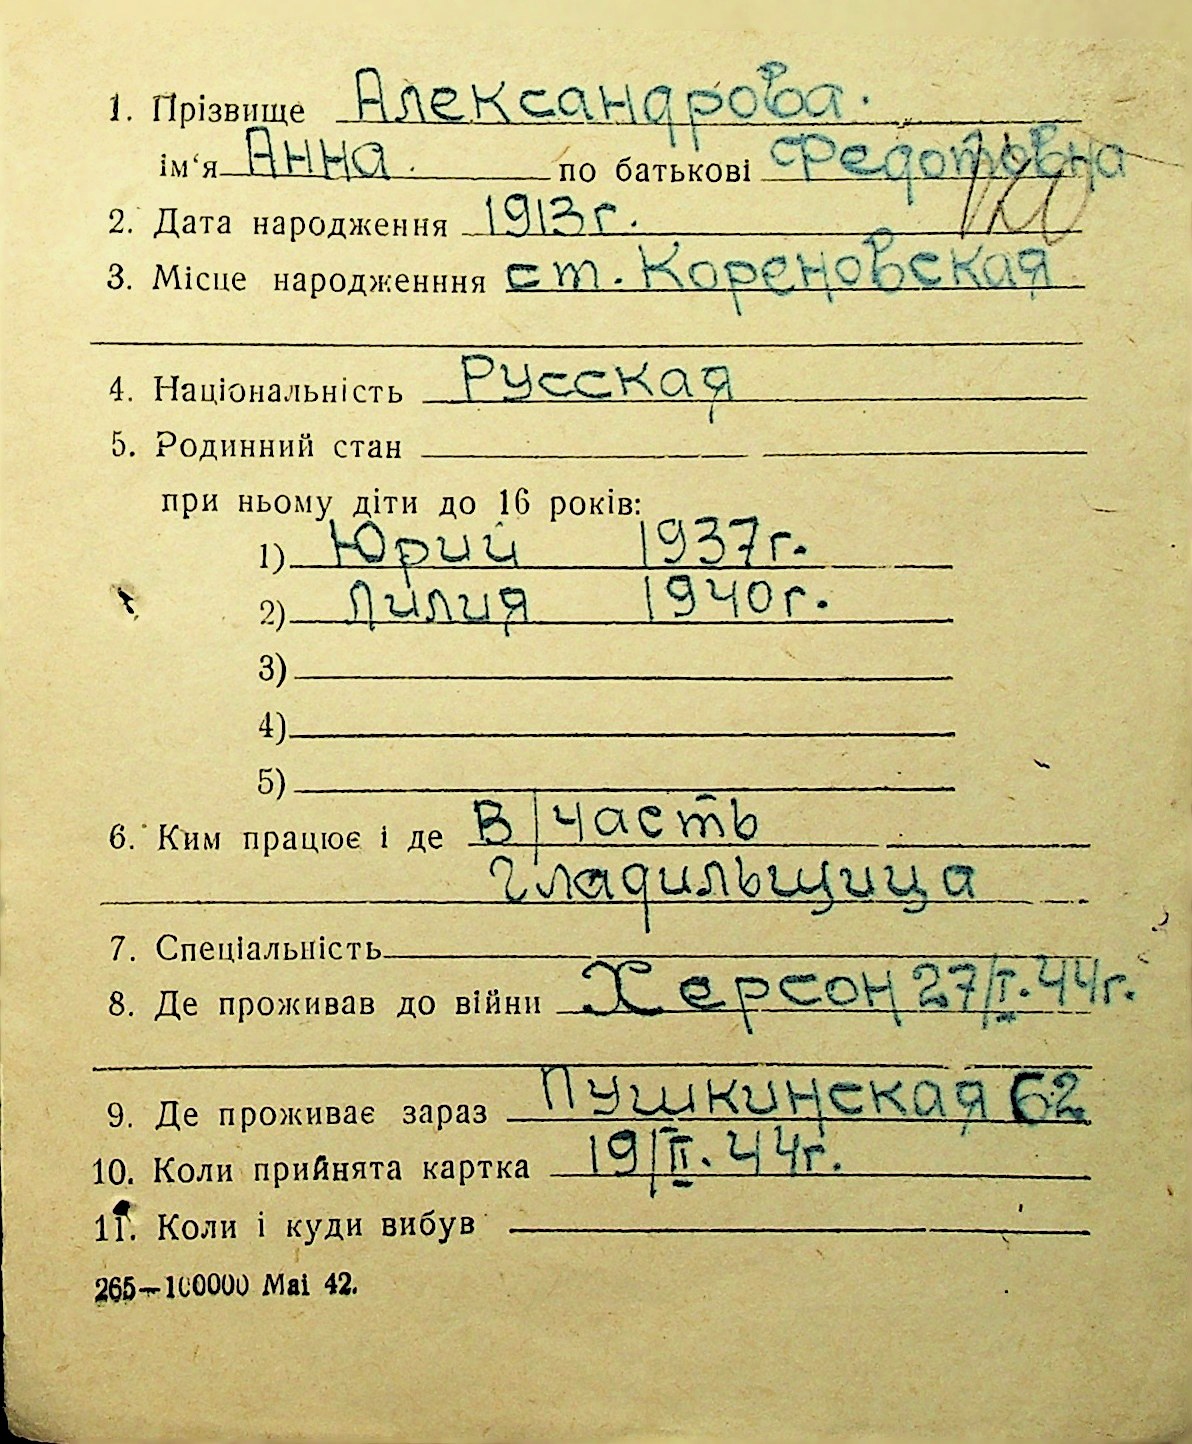 1. Прізвище Александрова.
ім‘я Анна. по батькові Федотовна
2. Дата народження 1913 г.
3. Місце народженння ст. Кореновская
4. Національність Русская
5. Родинний стан
при ньому діти до 16 років:
1) Юрий 1937 г.
2) Лилия 1940 г.
3)
4)
5)
6. Ким працює і де В/часть
гладильщица
7. Спеціальність
8. Де проживав до війни Херсон 27/I. 44 г.
9. Де проживає зараз Пушкинская 62
10. Коли прийнята картка 19/II. 44 г.
11. Коли і куди вибув
265—100000 Mai 42.